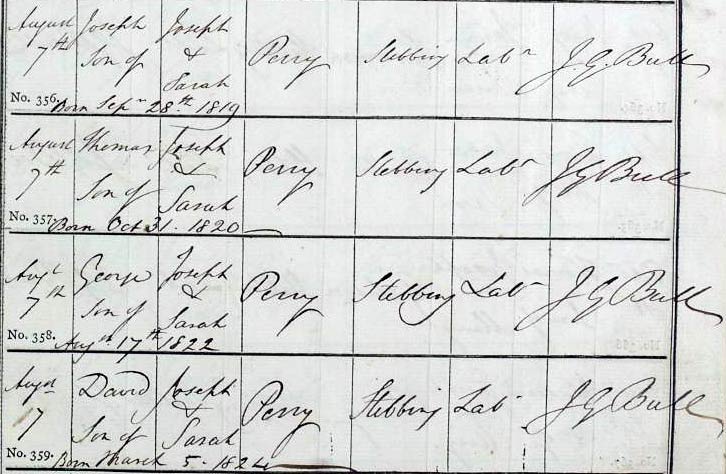 August Joseph Joseph
7th Son of & Perry Stebbing Labr J. G. Bull
Sarah
No. 356. Born Sepr 28th 1819
August Thomas Joseph
7th Son of & Perry Stebbing Labr J G Bull
Sarah
No. 357. Born Oct 31. 1820
Augt George Joseph
7th Son of & Perry Stebbing Labr J G Bull
Sarah
No. 358. Augst 17th 1822
Augst David Joseph
7 Son of & Perry Stebbing Labr J G Bull
Sarah
No. 359. Born March 5. 1824